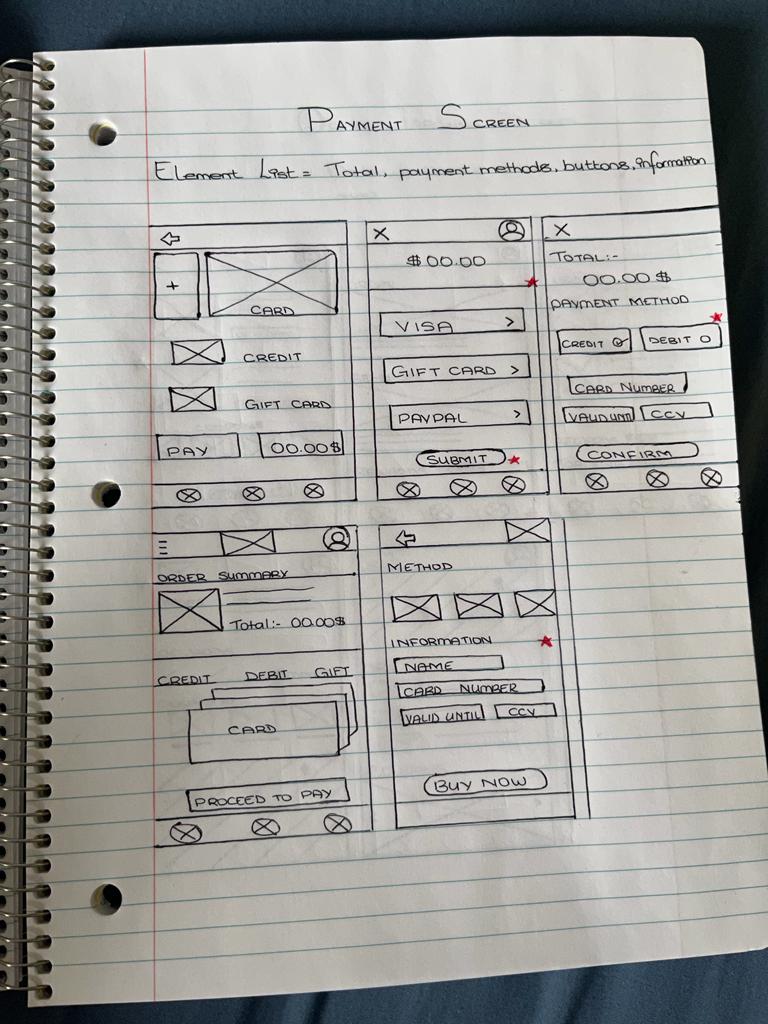 PAYMENT SCREEN
ELEMENT LIST = TOTAL, payment methods, buttons, information
CARD
CREDIT
GIFT CARD
PAY 00.00$
$00.00
VISA
GIFT CARD
PAYPAL
SUBMIT
TOTAL:-
00.00$
PAYMENT METHOD
CREDIT DEBIT
CARD NUMBER
VALID UNTIL CCV
CONFIRM
ORDER SUMMARY
Total:- 00.00$
CREDIT DEBIT GIFT
CARD
PROCEED TO PAY
METHOD
INFORMATION
NAME
CARD NUMBER
VALID UNTIL CCV
BUY NOW